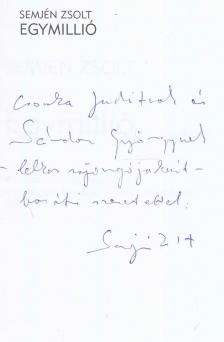 SEMJÉN ZSOLT
EGYMILLIÓ
Csonka Juditnak és
Sándor Györgynek
- lelkes rajongójaként -
baráti szeretettel:
Semjén Zs